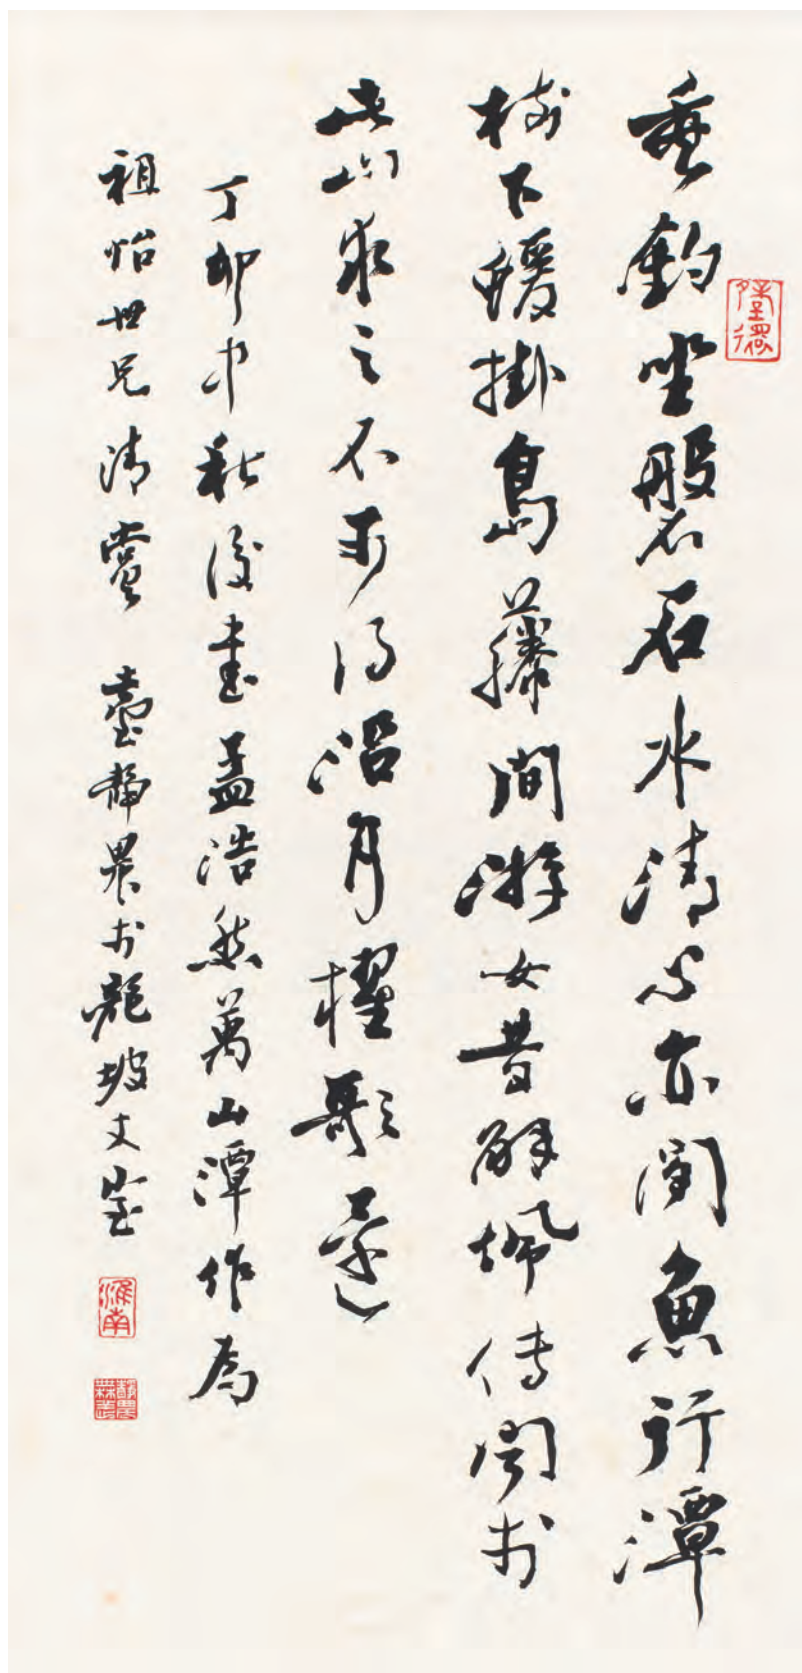 垂釣坐磐石水清心亦閒魚行潭
樹下蝯掛島藤間游女昔解珮傳聞於
此山求之不可得沿月櫂歌還
丁卯中秋後書孟浩然萬山潭作為
祖怡世兄清賞 臺靜農於龍坡丈室
淮南
靜農無恙